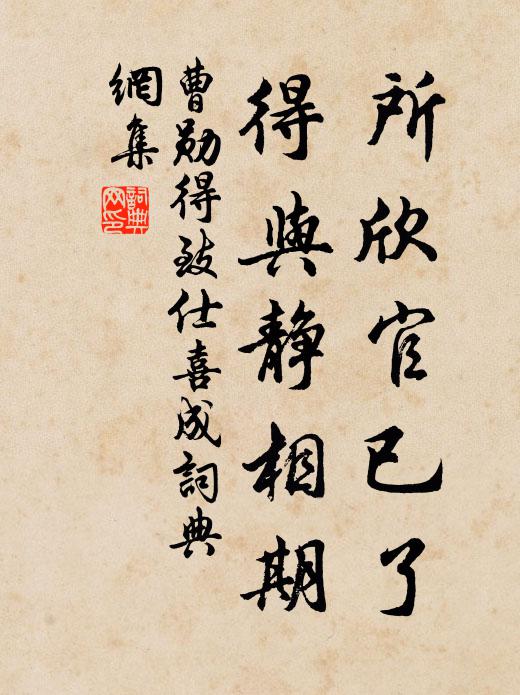 所欣官已了
得與静相期
曹勛得致仕喜成詞典
網集
詞典
网印